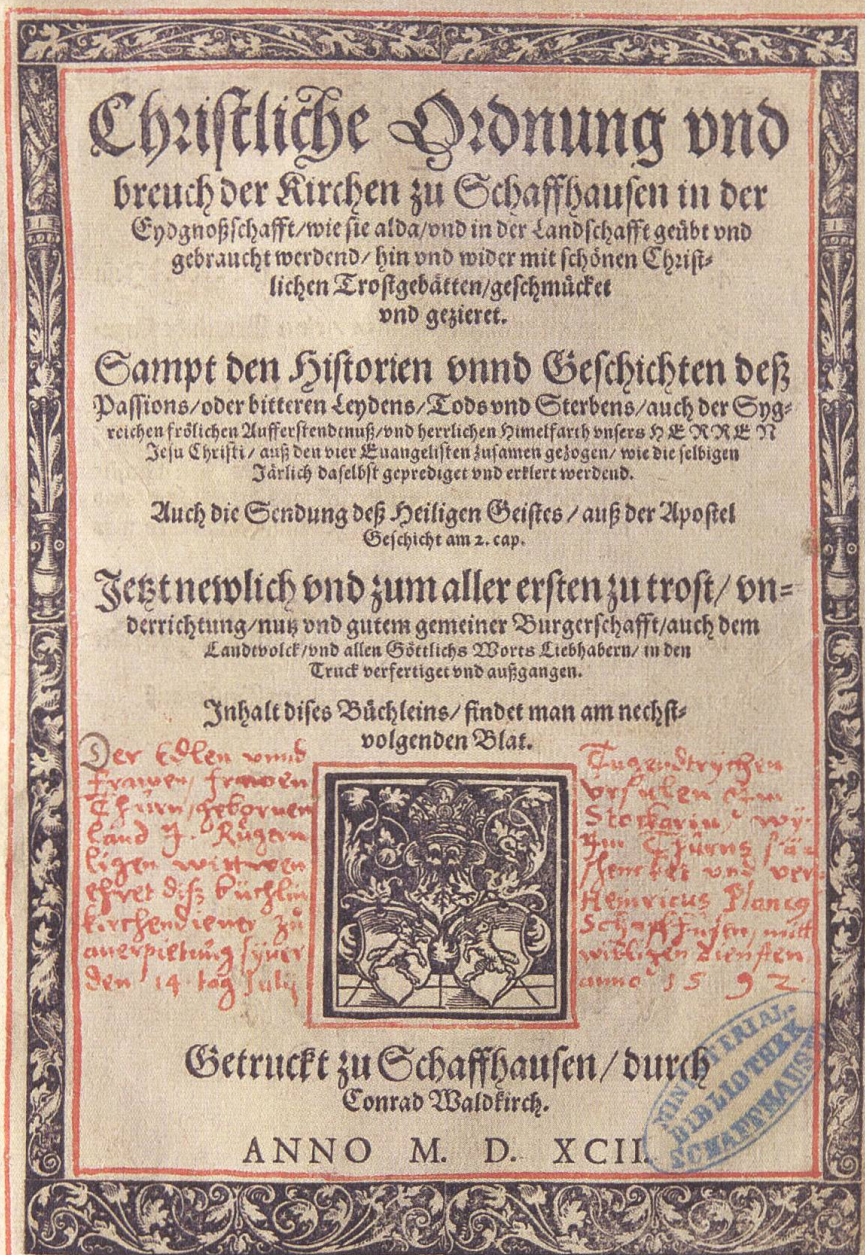 Christliche Ordnung vnd
breuch der Kirchen zu Schaffhausen in der
Eydgnoßschafft/wie sie alda/vnd in der Landschafft geübt vnd
gebraucht werdend/ hin vnd wider mit schönen Christ-
lichen Trostgebätten/geschmücket
vnd gezieret.
Sampt den Historien vnnd Geschichten deß
Passions/oder bitteren Leydens/Tods vnd Sterbens/auch der Syg-
reichen frölichen Aufferstendtnuß/vnd herrlichen Himelfarth vnsers HERREN
Jesu Christi/ auß den vier Euangelisten zusamen gezogen/ wie die selbigen
Järlich daselbst geprediget vnd erklert werdend.
Auch die Sendung deß Heiligen Geistes/ auß der Apostel
Geschicht am 2. cap.
Jetzt newlich vnd zum aller ersten zu trost/ vn-
derrichtung/nutz vnd gutem gemeiner Burgerschafft/auch dem
Landtvolck/vnd allen Göttlichs Worts Liebhabern/ in den
Truck verfertiget vnd außgangen.
Inhalt dises Büchleins/ findet man am nechst-
volgenden Blat.
Der Edlen vnnd Tugendtrychen
Frawen, frawen Vrsulen
Thurn, gebornen Stockarin, wy-
land J. Rügern Im Thurns
ligen wittwen schencket vnd ver-
ehret diß büchlin Heinricus Plancus
kirchendiener zu Schaffhusen, mitt
anerpietung syner willigen diensten.
den 14 tag Julij anno 1592.
Getruckt zu Schaffhausen/ durch
Conrad Waldkirch.
ANNO M. D. XCII.
MINISTERIAL-
BIBLIOTHEK
SCHAFFHAUSEN